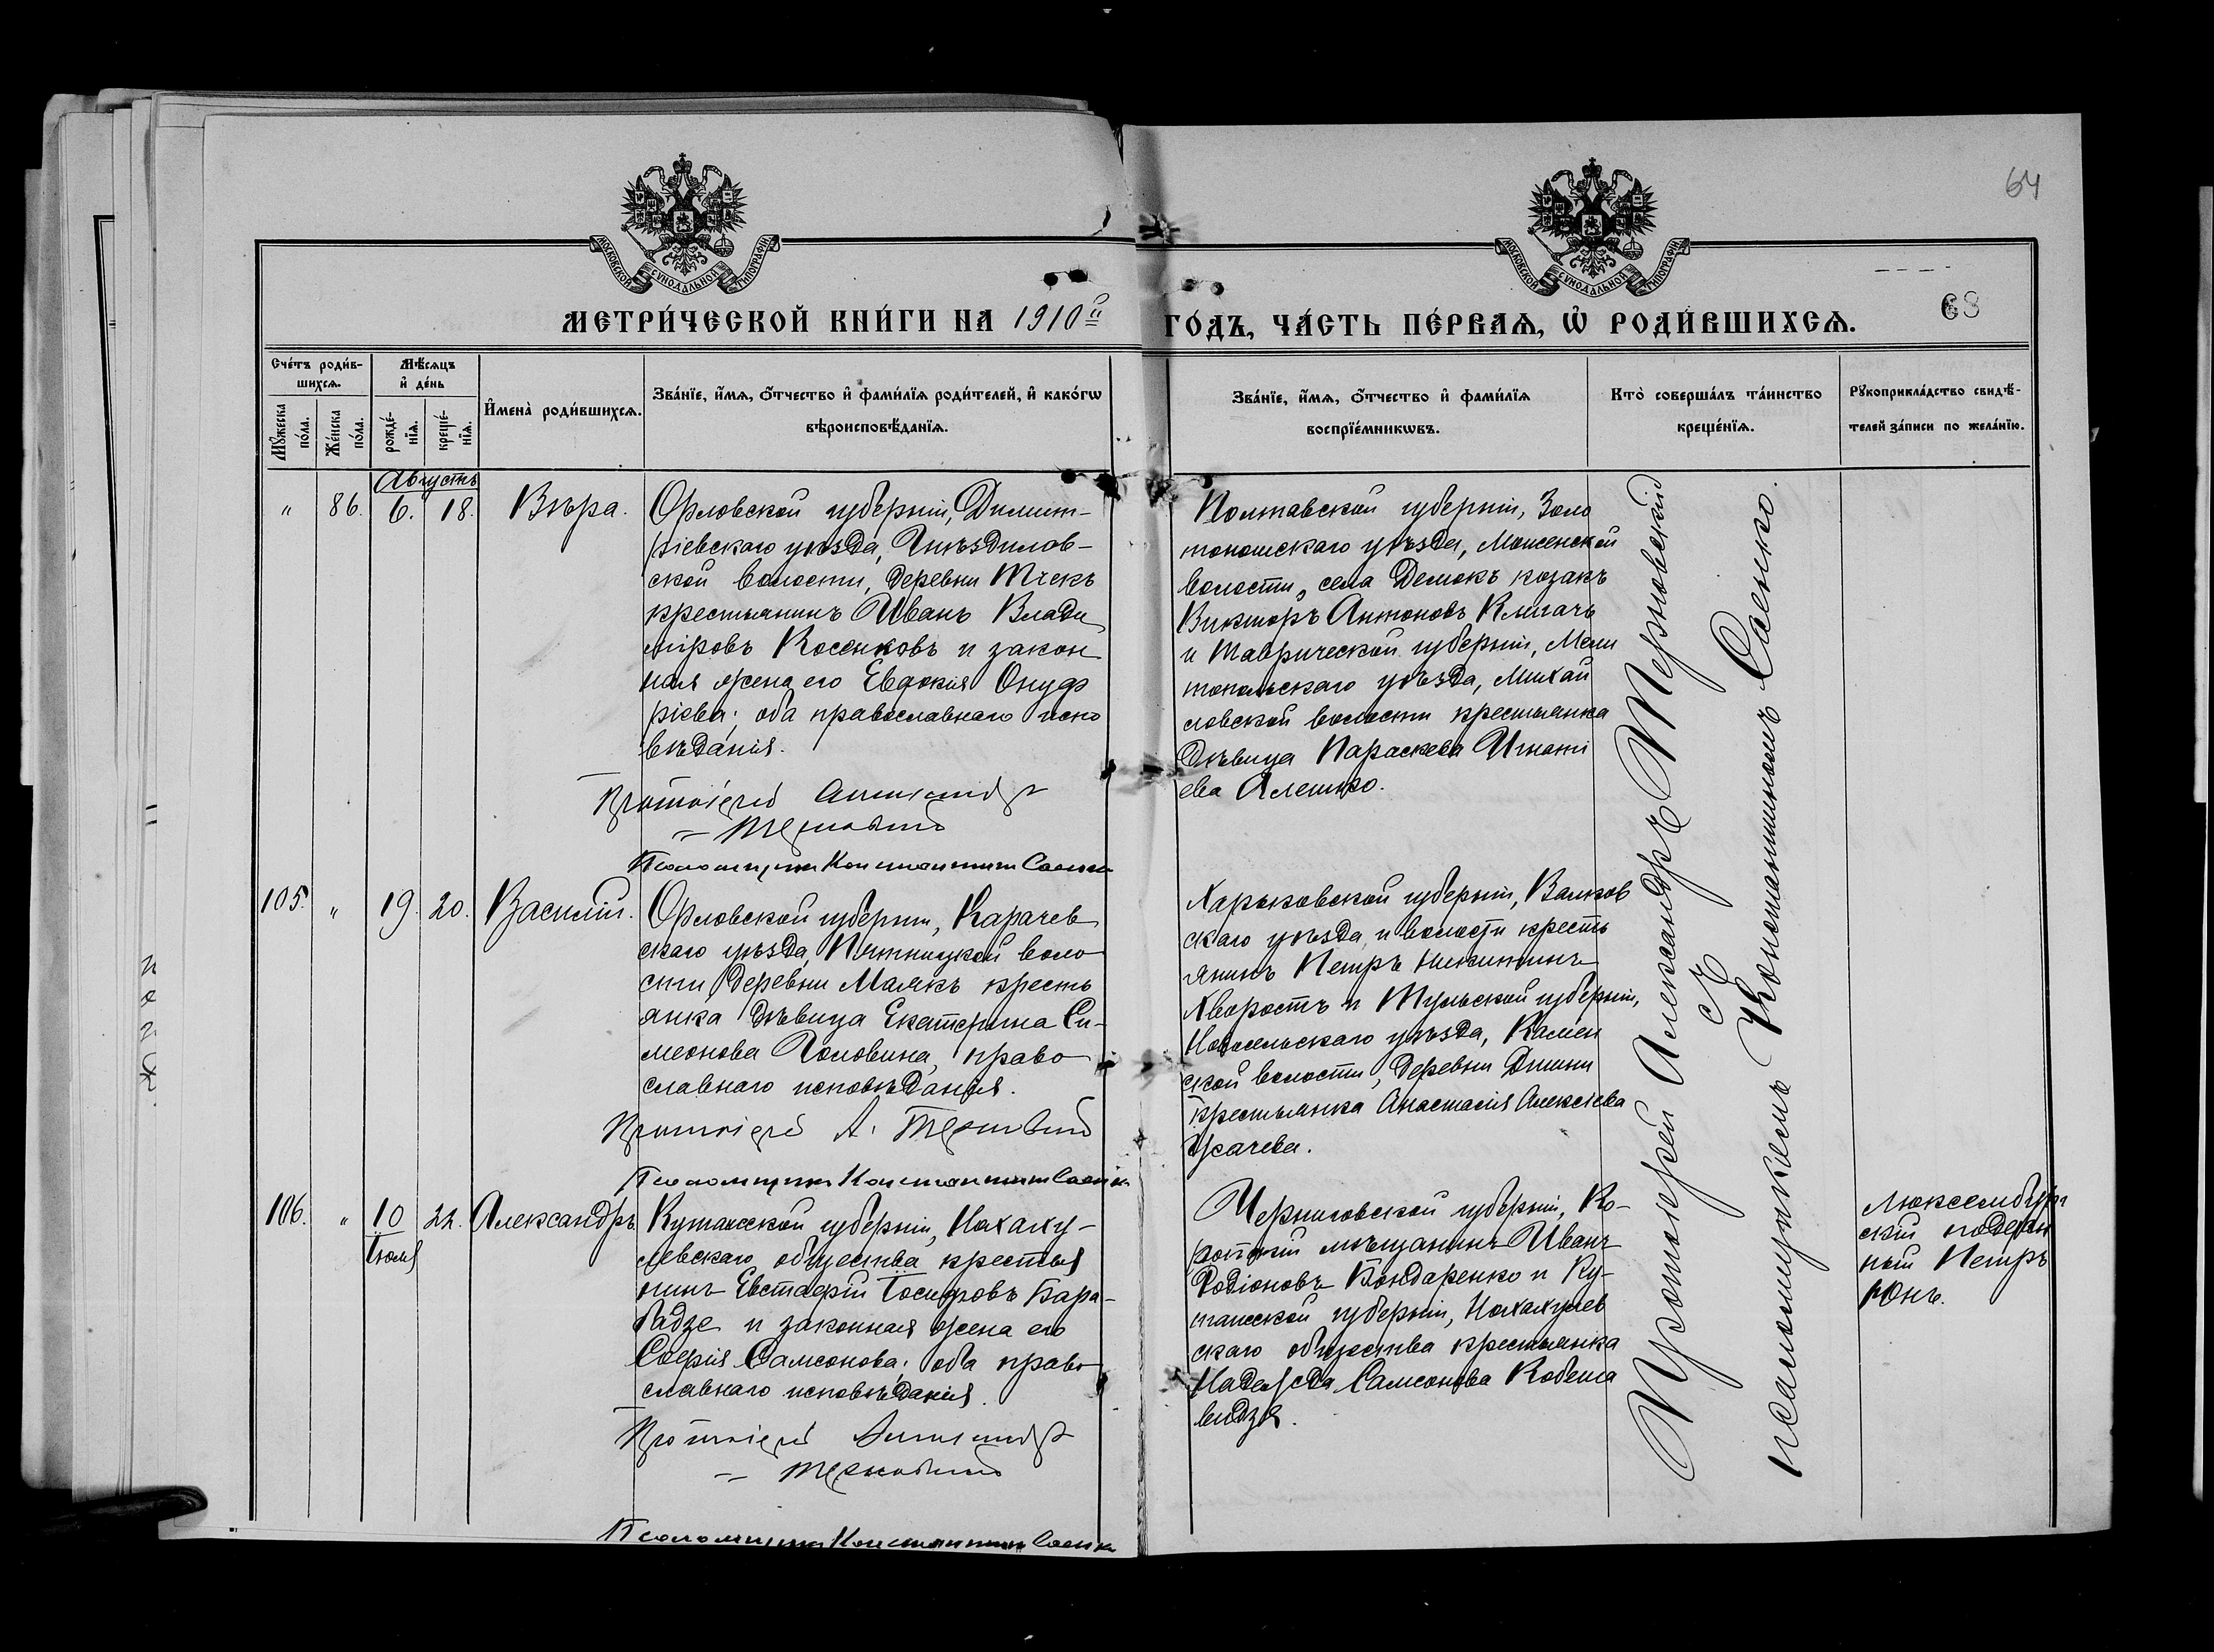 64
МОСКОВСКОЙ СУНОДАЛЬНОЙ ТИПОГРАФІИ
МОСКОВСКОЙ СУНОДАЛЬНОЙ ТИПОГРАФІИ
МЕТРИ́ЧЕСКОЙ КНИ́ГИ НА 1910й ГО́ДЪ, ЧА́СТЬ ПЕ́РВАѦ, Ѡ҆ РОДИ́ВШИХСѦ.
68
Сче́тъ роди́в-
шихсѧ.
Мꙋ́жеска по́ла.
Же́нска по́ла.
Мѣ́сѧцъ
и҆ де́нь
рожде́-
нїѧ.
креще́-
нїѧ.
И҆мена̀ роди́вшихсѧ.
Зва́нїе, и҆́мѧ, ѻ҆́тчество и҆ фами́лїѧ роди́телей, и҆ како́гѡ
вѣроисповѣ́данїѧ.
Зва́нїе, и҆́мѧ, ѻ҆́тчество и҆ фами́лїѧ
воспрїе́мникѡвъ.
Кто̀ соверша́лъ та́инство
креще́нїѧ.
Рꙋкоприкла́дство свидѣ́-
телей за́писи по жела́нїю.
Августъ
" 86. 6. 18. Вѣра.
Орловской губерніи, Димит-
ріевскаго уѣзда,
ской волости, деревни
крестьянинъ Иванъ Влади
міровъ Косенковъ и закон
ная жена его Евдокія Онуф
ріева; оба православнаго испо
вѣданія.
Протоіерей Александръ
Терновскій
Псаломщикъ Константинъ Саенко
Полтавской губерніи, Золо
тоношскаго уѣзда,
волости, села Демокъ козакъ
Викторъ Антоновъ Клигачъ
и Таврической губерніи, Мели
топольскаго уѣзда, Михай
ловской волости крестьянка
дѣвица Параскева Игнаті
ева Алешко.
105. " 19. 20. Василій.
Орловской губерніи, Карачев
скаго уѣзда, Пятницкой воло
сти, деревни Маякъ кресть
янка дѣвица Екатерина Си-
меонова Головина, право
славнаго исповѣданія.
Протоіерей А. Терновскій
Псаломщикъ Константинъ Саенко
Харьковской губерніи, Валков
скаго уѣзда и волости кресть
янинъ Петръ Никитинъ
Хворостъ и Тульской губерніи,
Новосильскаго уѣзда, Камен
ской волости, деревни
крестьянка Анастасія Алексіева
Усачева.
106. " 10 22. Александръ
Іюля
Кутаисской губерніи, Нахаху-
левскаго общества крестья
нинъ Евстафій Іосифовъ Бара-
бадзе и законная жена его
Софія Самсонова; оба право
славнаго исповѣданія.
Протоіерей Александръ
Терновскій
Псаломщикъ Константинъ Саенко
Черниговской губерніи, Ко-
ропскій мѣщанинъ Иванъ
Родіоновъ Бондаренко и Ку-
таисской губерніи, Нахахулев
скаго общества крестьянка
Надежда Самсонова Кобеша
видзе.
Протоіерей Александръ Терновскій
съ
псаломщикомъ Константиномъ Саенко.
Люксембург
скій поддан
ный Петръ
Юнъ.